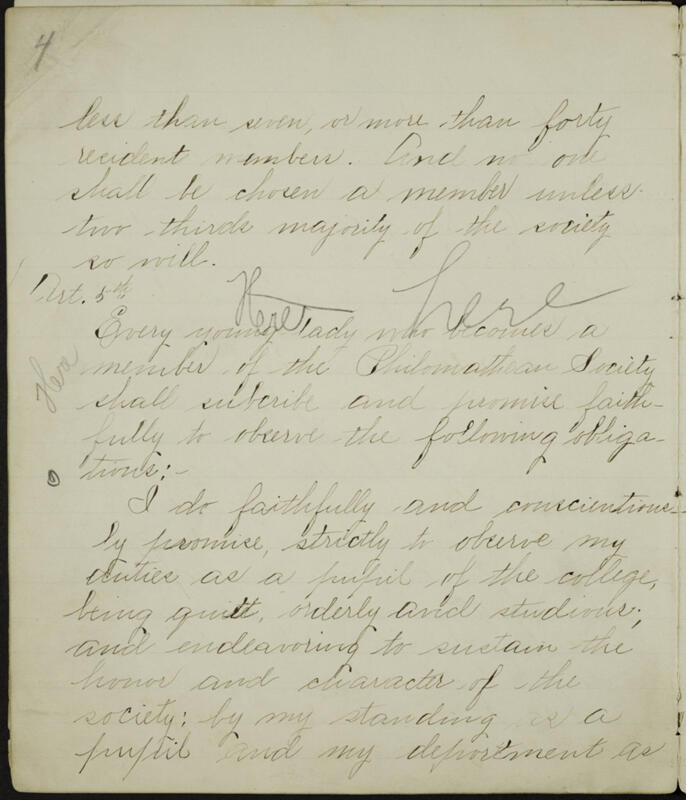 4
less than seven, or more than forty
resident members. And no one
shall be chosen a member unless
two thirds majority of the society
so will.
Art. 5th
Here here
Every young lady who becomes a
member of the Philomathean Society
Here
shall subcribe and promise faith-
fully to observe the following obliga-
tions:-
I do faithfully and conscientious-
ly promise, strictly to observe my
duties as a pupil of the college,
being quiet, orderly and studious;
and endeavoring to sustain the
honor and character of the
society: by my standing as a
pupil and my deportment as